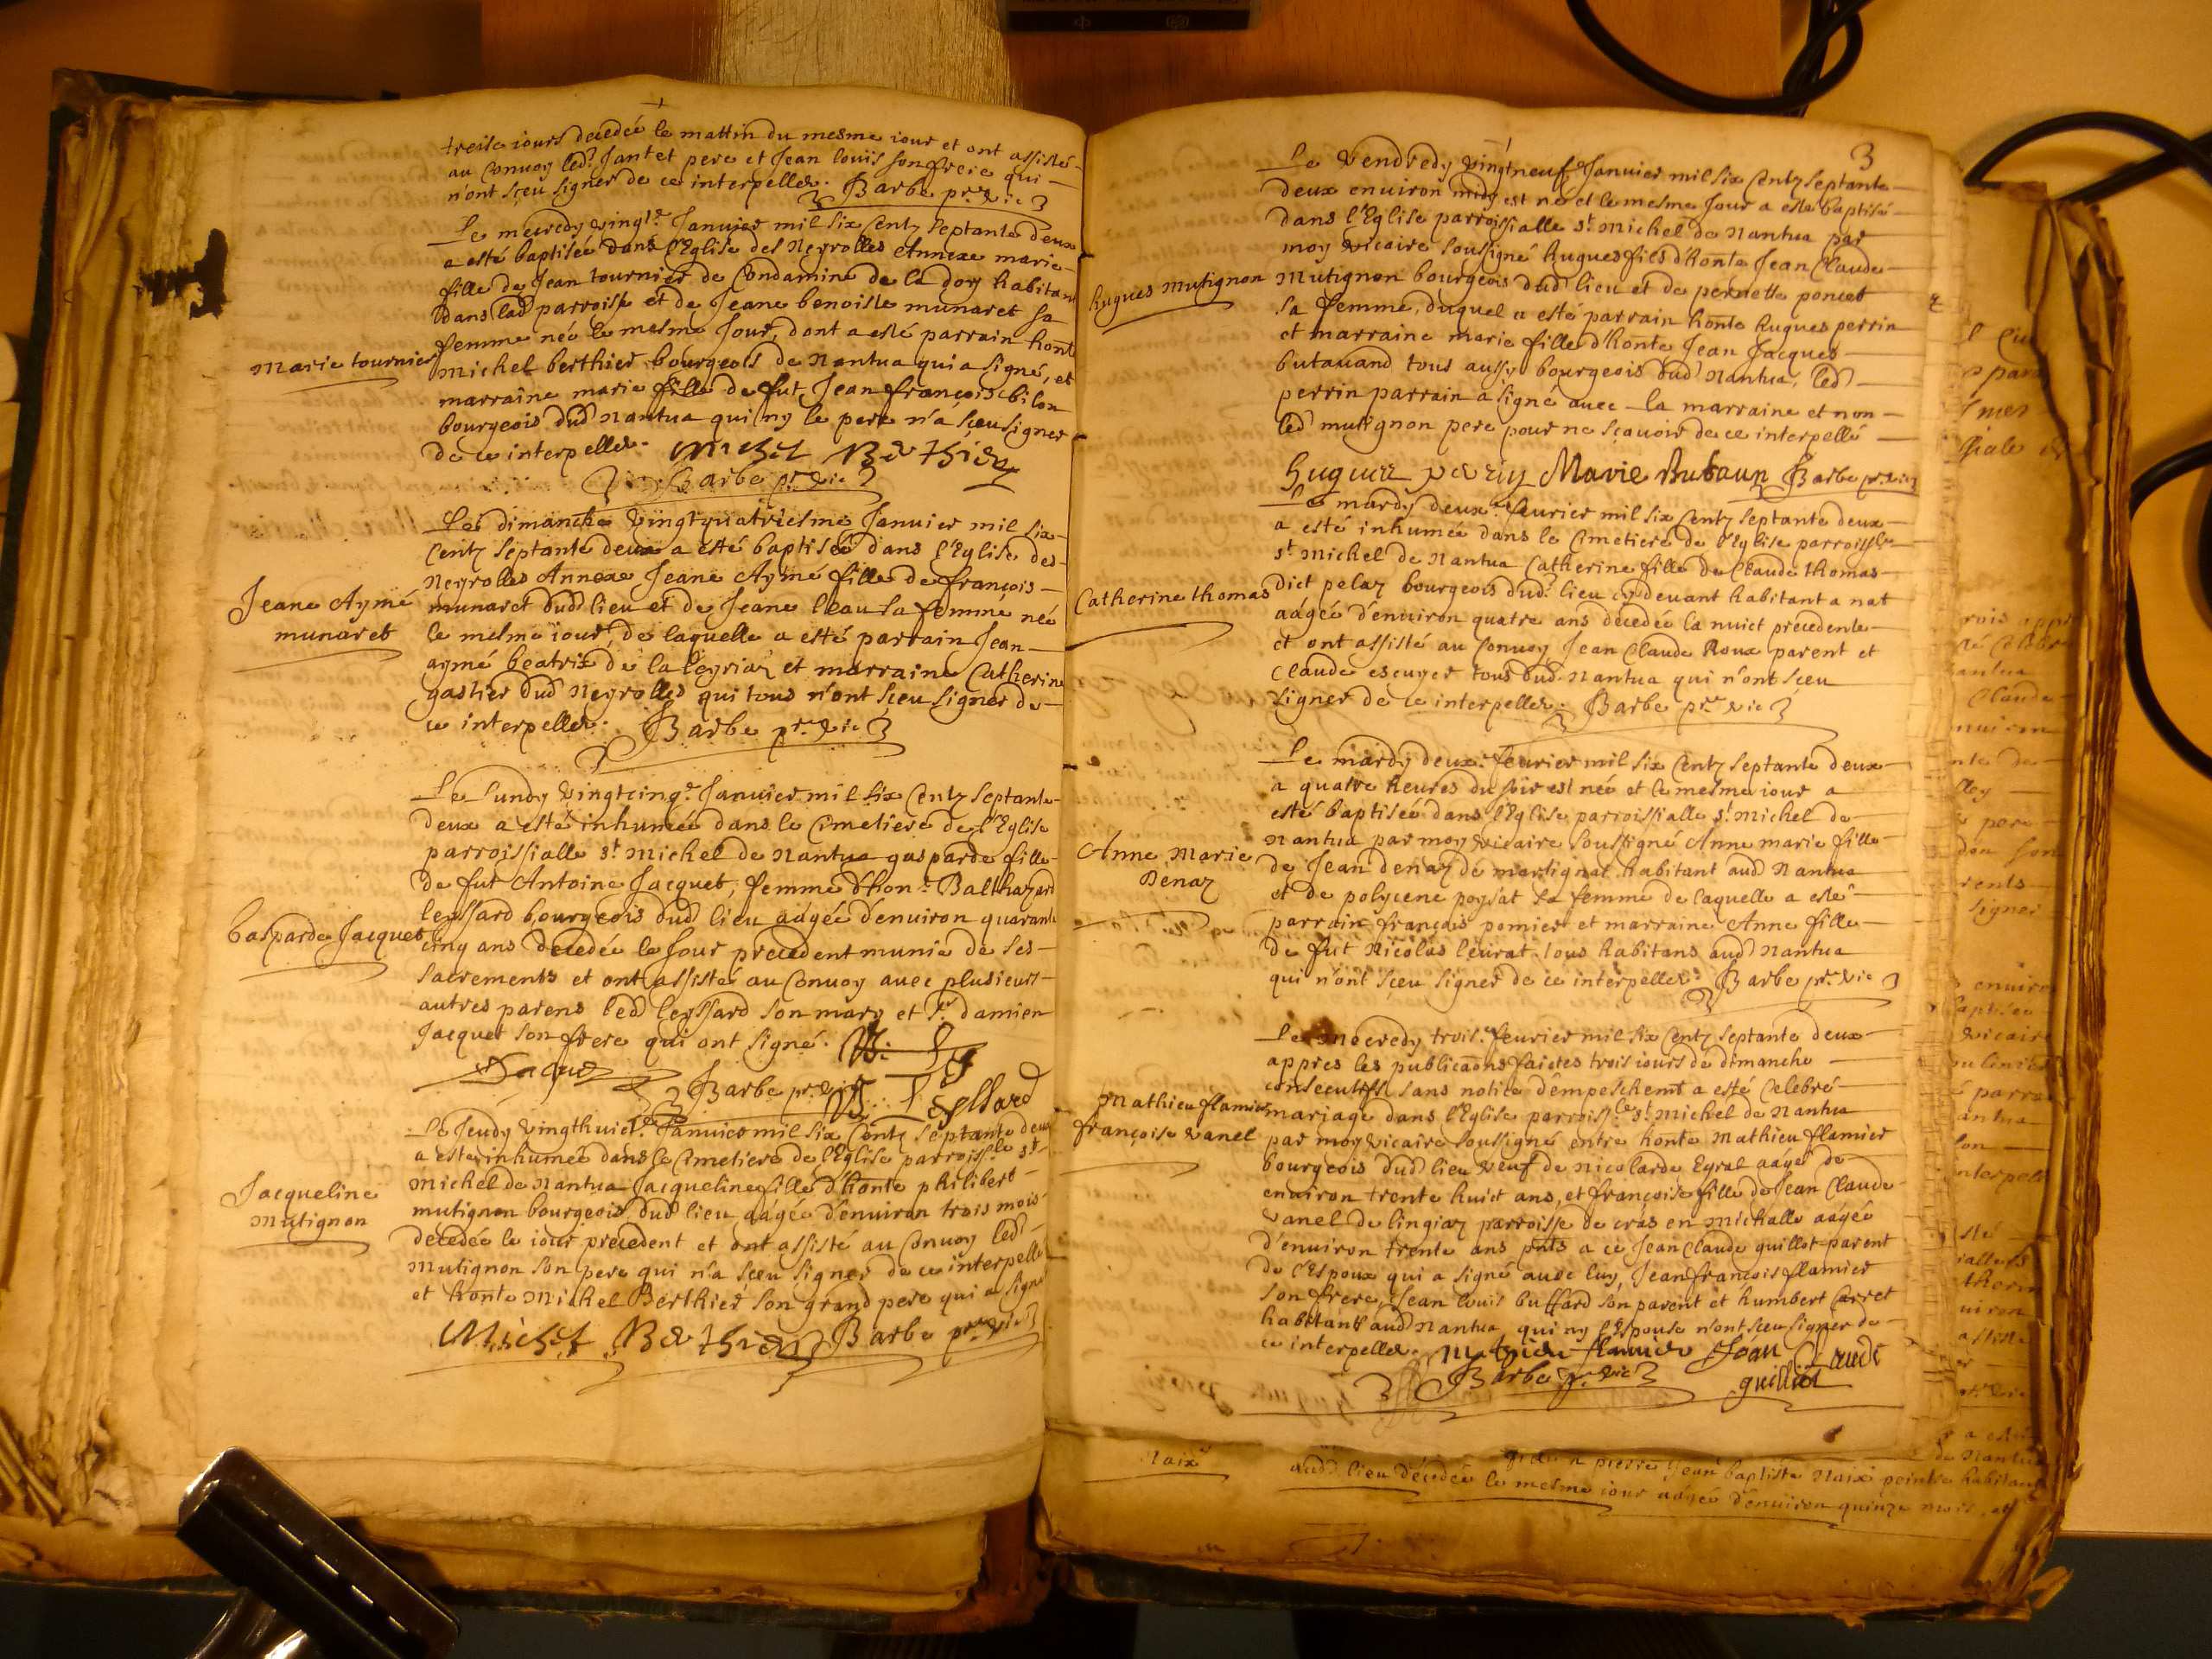 treise iours decedée le mattin du mesme iour et ont assisté
au Convoy led^t Jantet pere et Jean louis son frere qui
n'ont sçeu signer de ce interpelles. Barbe p^re vic
Le mecredy vingt^e Januier mil six Centz septante deux
a esté baptisée dans l'Eglise des Neyrolles Annexe marie
fille de Jean tournier de Condamine de la doy habitant
dans lad parroisse et de Jeane benoiste munaret sa
femme née le mesme Jour, dont a esté parrain honte
marie tournier
michel berthier bourgeois de Nantua qui a signé, et
marraine marie fille de fut Jean françois bilon
bourgeois dud Nantua qui ny le pere n'a sçeu signer
de ce interpelles. Michel Berthier
Barbe p^re vic
Le dimanche vingtquatriesme Januier mil six
Centz septante deux a esté baptisée dans l'Eglise des
Neyrolles Annexe Jeane Aymé fille de françois
Jeane Aymé
munaret
munaret dud lieu et de Jeane leau sa femme née
le mesme iour, de laquelle a esté parrain Jean
aymé beatrix de la leyriaz et marraine Catherine
gastier dud Neyrolles qui tous n'ont sçeu signer de
ce interpelles. Barbe p^re vic
Le Lundy vingtcinq^e Januier mil six Centz septante
deux a esté inhumée dans le Cimetiere de l'Eglise
parroissialle s^t Michel de Nantua gasparde fille
de fut Antoine Jacquet, femme d'hon^e Balthazard
leyssard bourgeois dud lieu aâgée d'enuiron quarante
Gasparde Jacquet
cinq ans decedée le Jour precedent munie de ses
sacrements et ont assisté au Convoy avec plusieurs
autres parens led leyssard son mary et s^r damien
Jacquet son frere qui ont signé.
Jaquet
Barbe p^re vic B. Leyssard
Le Jeudy vingthuict^e Januier mil six Centz septante deux
a esté inhumée dans le Cimetiere de l'Eglise parroiss^le s^t
Jacqueline
mutignon
michel de Nantua Jacqueline fille d'honte philibert
mutignon bourgeois dud lieu aâgée d'enuiron trois mois
decedée le iour precedent et ont assisté au Convoy led
mutignon son pere qui n'a sçeu signer de ce interpellé
et honte Michel Berthier son grand pere qui a signé
Michel Berthier Barbe p^re vic
3
Le Vendredy vingtneuf Januier mil six Centz septante
deux enuiron midy est né et le mesme Jour a esté baptisé
dans l'Eglise parroissialle s^t Michel de Nantua par
moy vicaire soussigné hugues fils d'honte Jean Claude
hugues mutignon
Mutignon bourgeois dud lieu et de pernette poncet
sa femme, duquel a esté parrain honte hugues perrin
et marraine marie fille d'honte Jean Jacques
butauand tous aussy bourgeois dud Nantua, led
perrin parrain a signé auec la marraine et non
led mutignon pere pour ne sçauoir de ce interpellé
Hugues perrin Marie Butaun Barbe p^re vic
Le mardy deux^e feurier mil six Centz septante deux
a esté inhumée dans le Cimetiere de l'Eglise parroiss^le
s^t michel de Nantua Catherine fille de Claude thomas
Catherine thomas
dict pelaz bourgeois dud lieu cy deuant habitant a nat
aâgée d'enuiron quatre ans decedée la nuict precedente
et ont assisté au Convoy Jean Claude Roux parent et
Claude escuyer tous dud Nantua qui n'ont sçeu
signer de ce interpelles. Barbe p^re vic
Le mardy deux^e feurier mil six Centz septante deux
a quatre heures du soir est née et le mesme iour a
esté baptisée dans l'Eglise parroissialle s^t Michel de
Nantua par moy vicaire soussigné Anne marie fille
Anne Marie
Denaz
de Jean denaz de martignat habitant aud Nantua
et de polycene poysat sa femme de laquelle a esté
parrain françois pomier et marraine Anne fille
de fut Nicolas leurat tous habitans aud Nantua
qui n'ont sçeu signer de ce interpelles. Barbe p^re vic
Le mecredy trois^e feurier mil six Centz septante deux
appres les publicaons faictes trois iours de dimanche
consecutifs sans notice d'empeschemt a esté Celebré
Mathieu flamier
françoise vanel
mariage dans l'Eglise parroiss^le s^t Michel de Nantua
par moy vicaire soussigné entre honte Mathieu flamier
bourgeois dud lieu veuf de nicolarde Eyral aâgé de
enuiron trente huict ans, et françoise fille de Jean Claude
vanel de lingiaz parroisse de cras en michalle aâgée
d'enuiron trente ans pnts a ce Jean Claude guillot parent
de l'Espoux qui a signé auec luy, Jean françois flamier
son frere, Jean louis buffard son parent et humbert Carret
habitants aud Nantua qui ny l'Espouse n'ont sçeu signer de
ce interpelles. Mathieu flamier Jean Claude
Barbe p^re vic guilliot
pierre Jean baptiste Naix peintre habitant
Naix
aud lieu decedée le mesme iour aâgée d'enuiron quinze mois, et